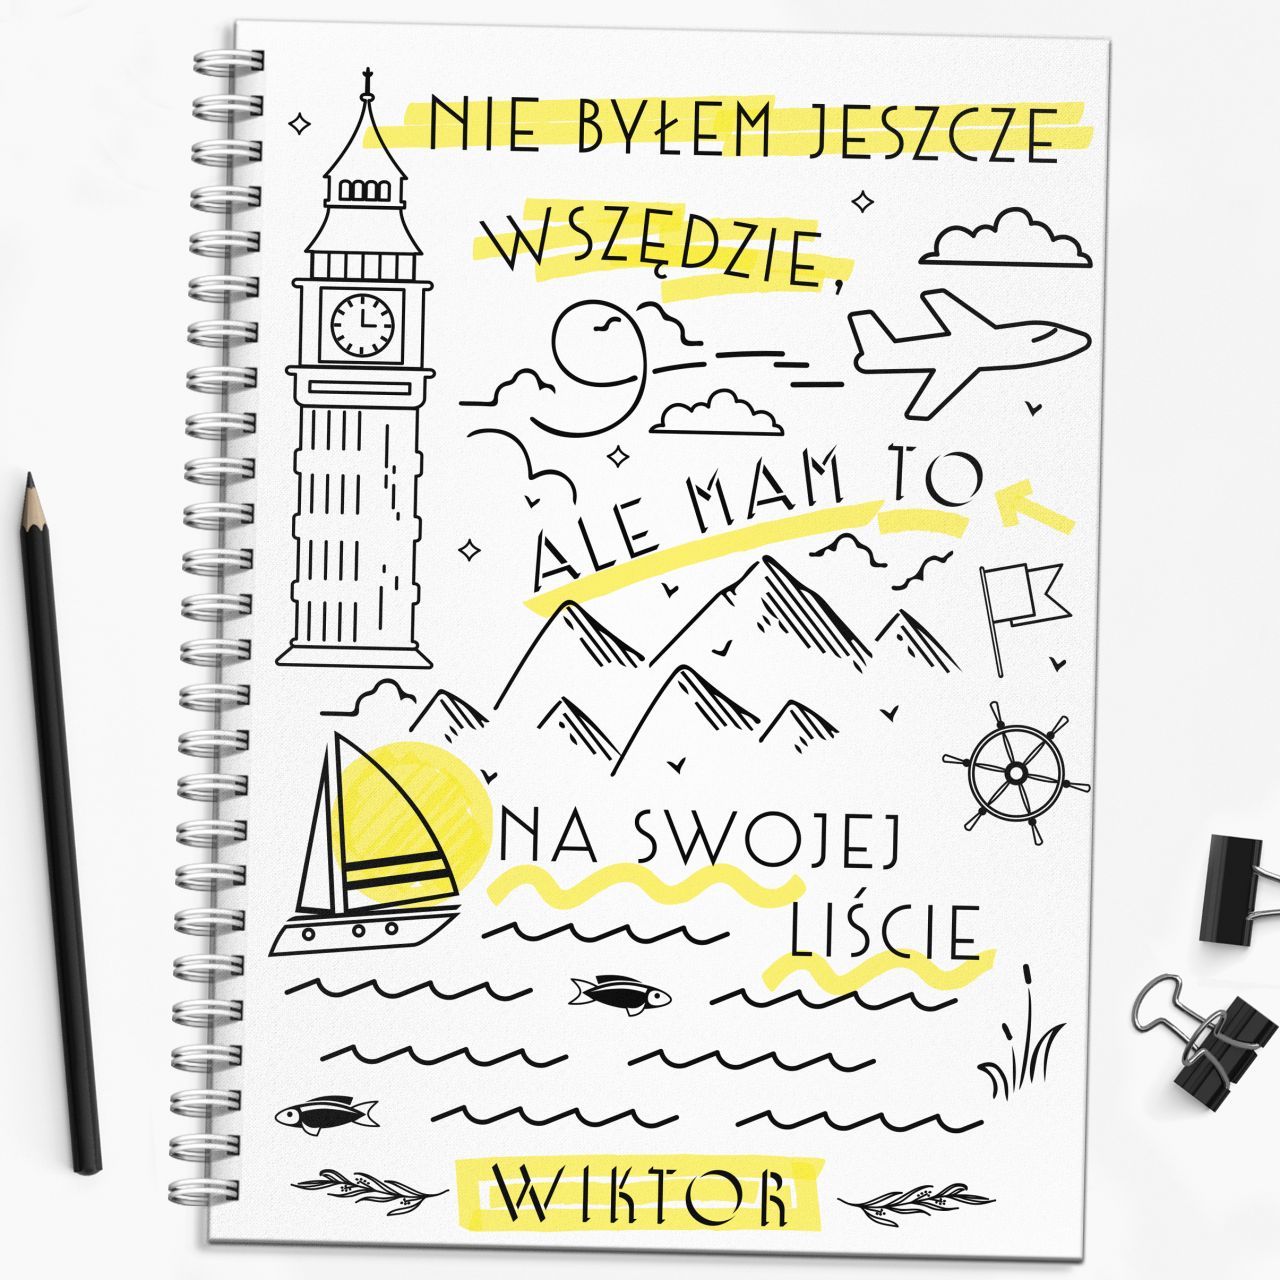 NIE BYŁEM JESZCZE
WSZĘDZIE,
ALE MAM TO
NA SWOJEJ
LIŚCIE
WIKTOR